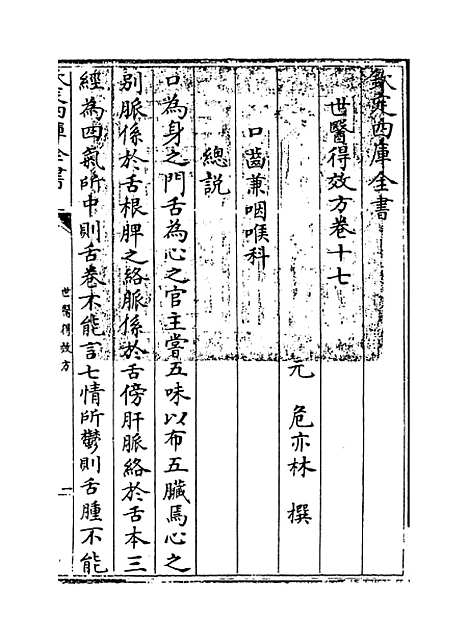 欽定四庫全書
世醫得效方卷十七
元 危亦林 撰
口齒兼咽喉科
總說
口為身之門舌為心之官主嘗五味以布五臟焉心之
别脈係於舌根脾之絡脈係於舌傍肝脈絡於舌本三
經為四氣所中則舌卷不能言七情所鬱則舌腫不能
欽定四庫全書
世醫得效方